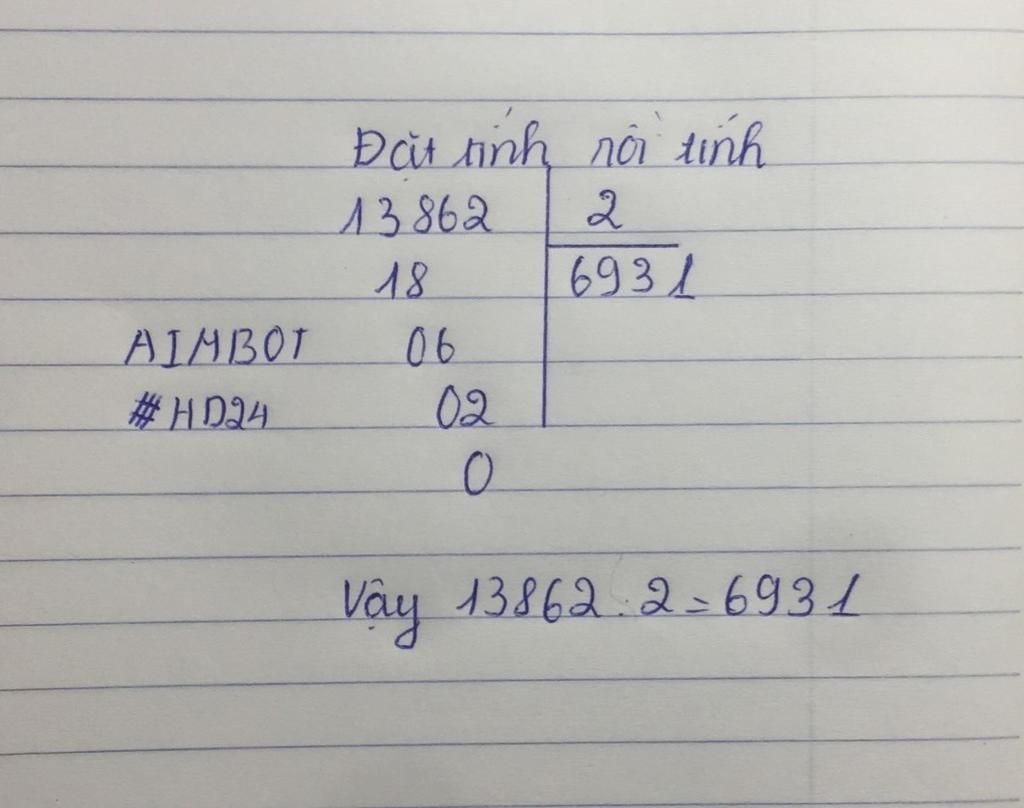 Đặt tính rồi tính
13862 2
18 6931
AIMBOT 06
#HD24 02
0
Vậy 13862 : 2 = 6931